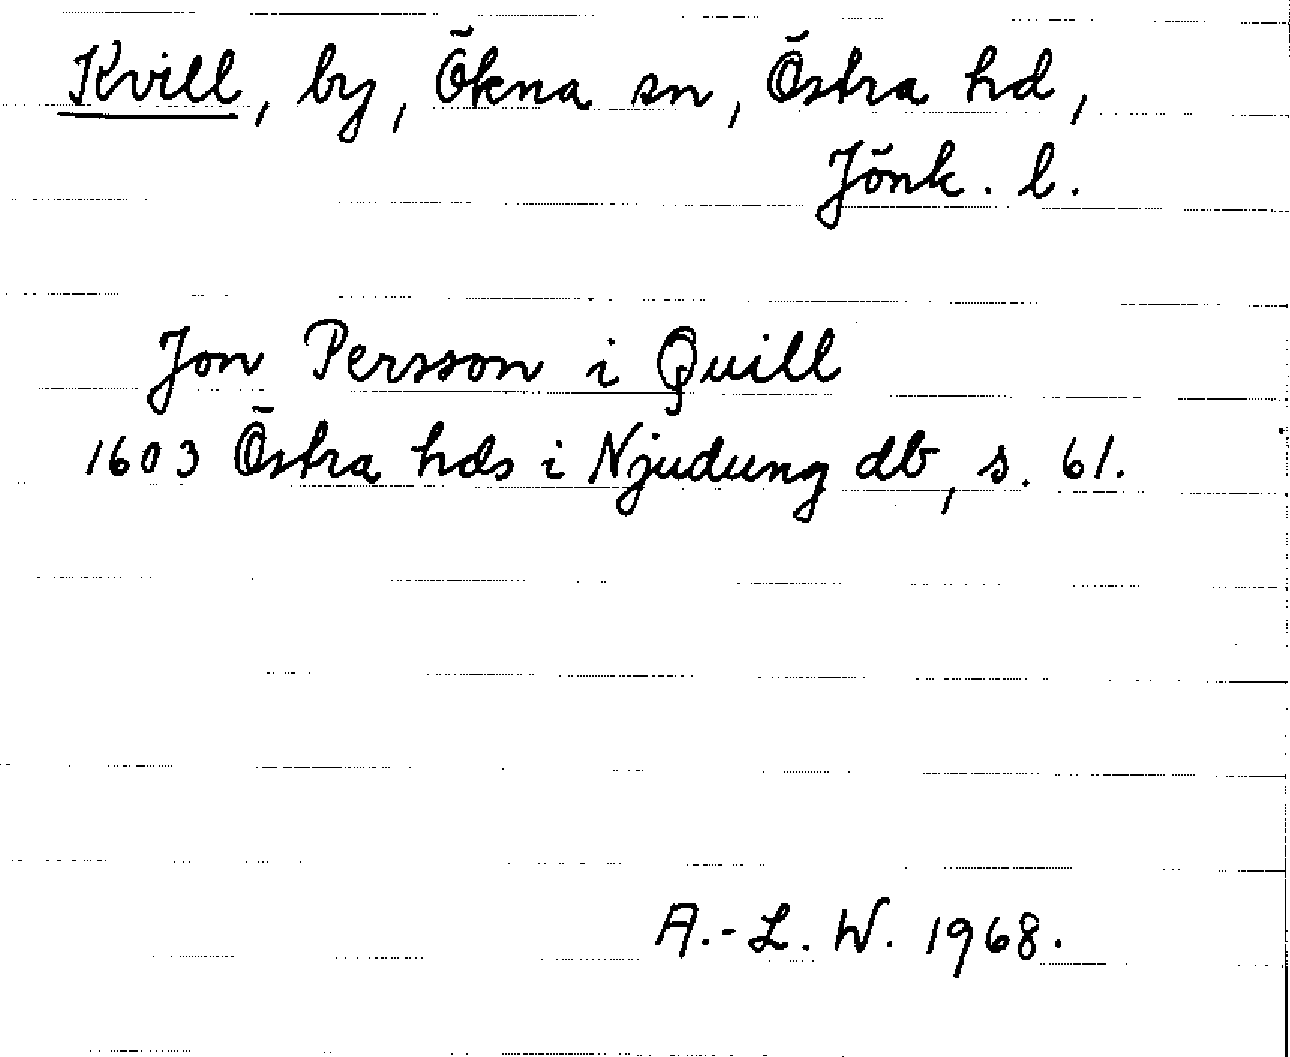 Kvill, by, Ökna sn, Östra hd,
Jönk. l.
Jon Persson i Quill
1603 Östra hds i Njudung db, s. 61.
A.-L. W. 1968.